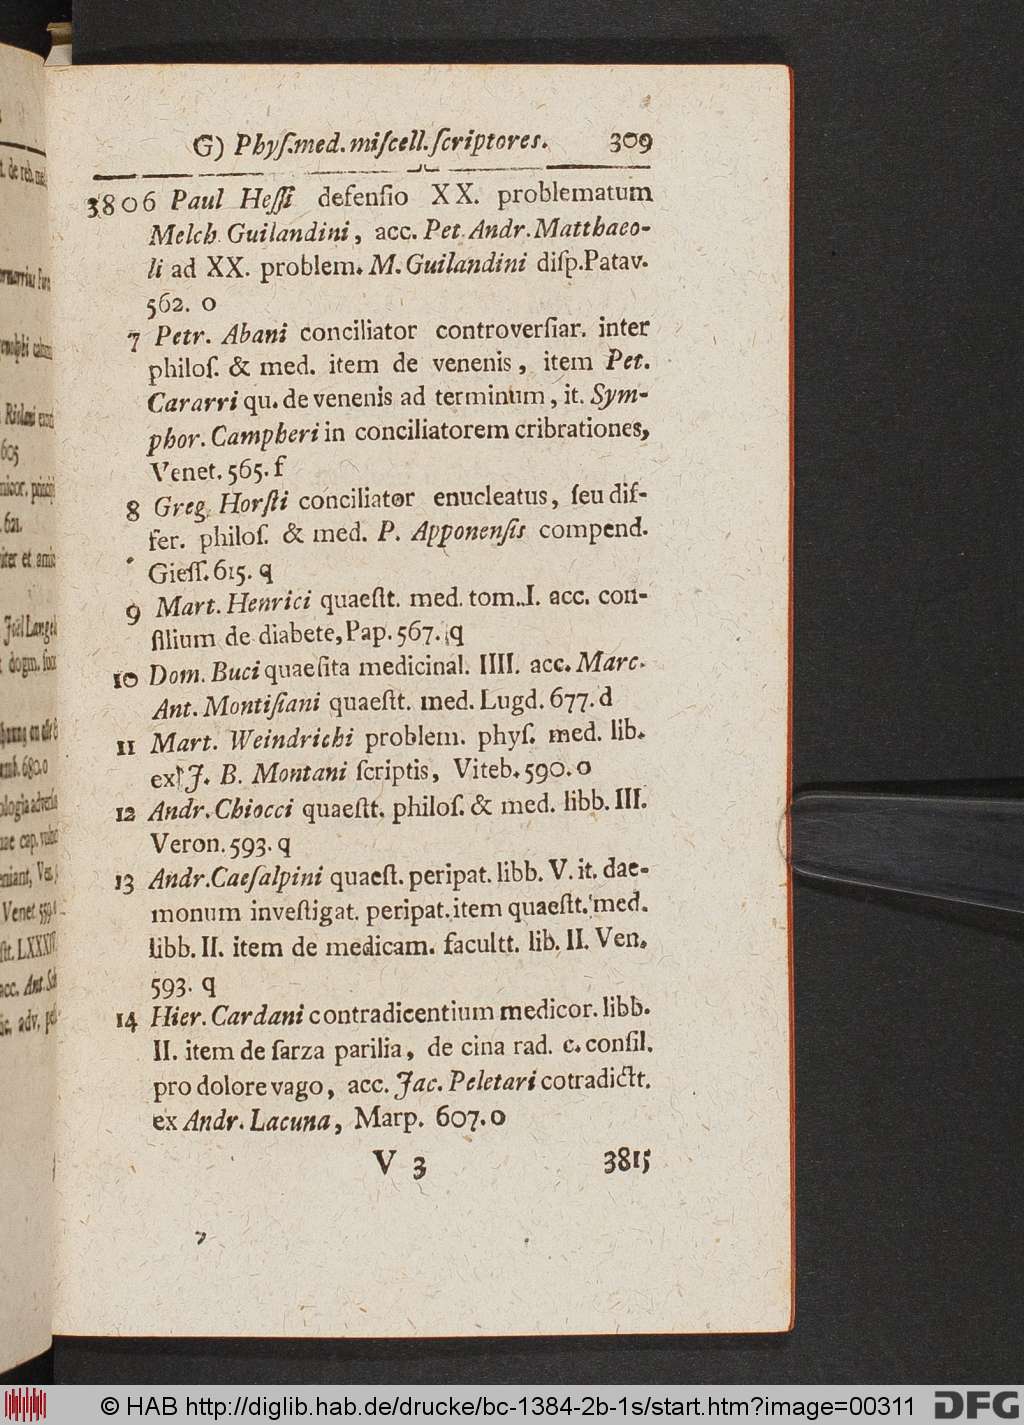 G) Phyſ.med.miſcell.ſcriptores. 309
3806 Paul Heſſi defenſio XX. problematum
Melch. Guilandini, acc. Pet. Andr. Matthaeo-
li ad XX. problem. M. Guilandini diſp. Patav.
562. o
7 Petr. Abani conciliator controverſiar. inter
philoſ. & med. item de venenis, item Pet.
Cararri qu. de venenis ad terminum, it. Sym-
phor. Campheri in conciliatorem cribrationes,
Venet. 565. f
8 Greg. Horſti conciliator enucleatus, ſeu dif-
fer. philoſ. & med. P. Apponenſis compend.
Gieſſ. 615. q
9 Mart. Henrici quaeſtt. med. tom. I. acc. con-
ſilium de diabete, Pap. 567. q
10 Dom. Buci quaeſita medicinal. IIII. acc. Marc.
Ant. Montiſiani quaeſtt. med. Lugd. 677. d
11 Mart. Weindrichi problem. phyſ. med. lib.
ex J. B. Montani ſcriptis, Viteb. 590. o
12 Andr. Chiocci quaeſtt. philoſ. & med. libb. III.
Veron. 593. q
13 Andr. Caeſalpini quaeſt. peripat. libb. V. it. dae-
monum inveſtigat. peripat. item quaeſtt. med.
libb. II. item de medicam. facultt. lib. II. Ven.
593. q
14 Hier. Cardani contradicentium medicor. libb.
II. item de ſarza parilia, de cina rad. c. conſil.
pro dolore vago, acc. Jac. Peletari cotradictt.
ex Andr. Lacuna, Marp. 607. o
V 3 3815
© HAB http://diglib.hab.de/drucke/bc-1384-2b-1s/start.htm?image=00311 DFG